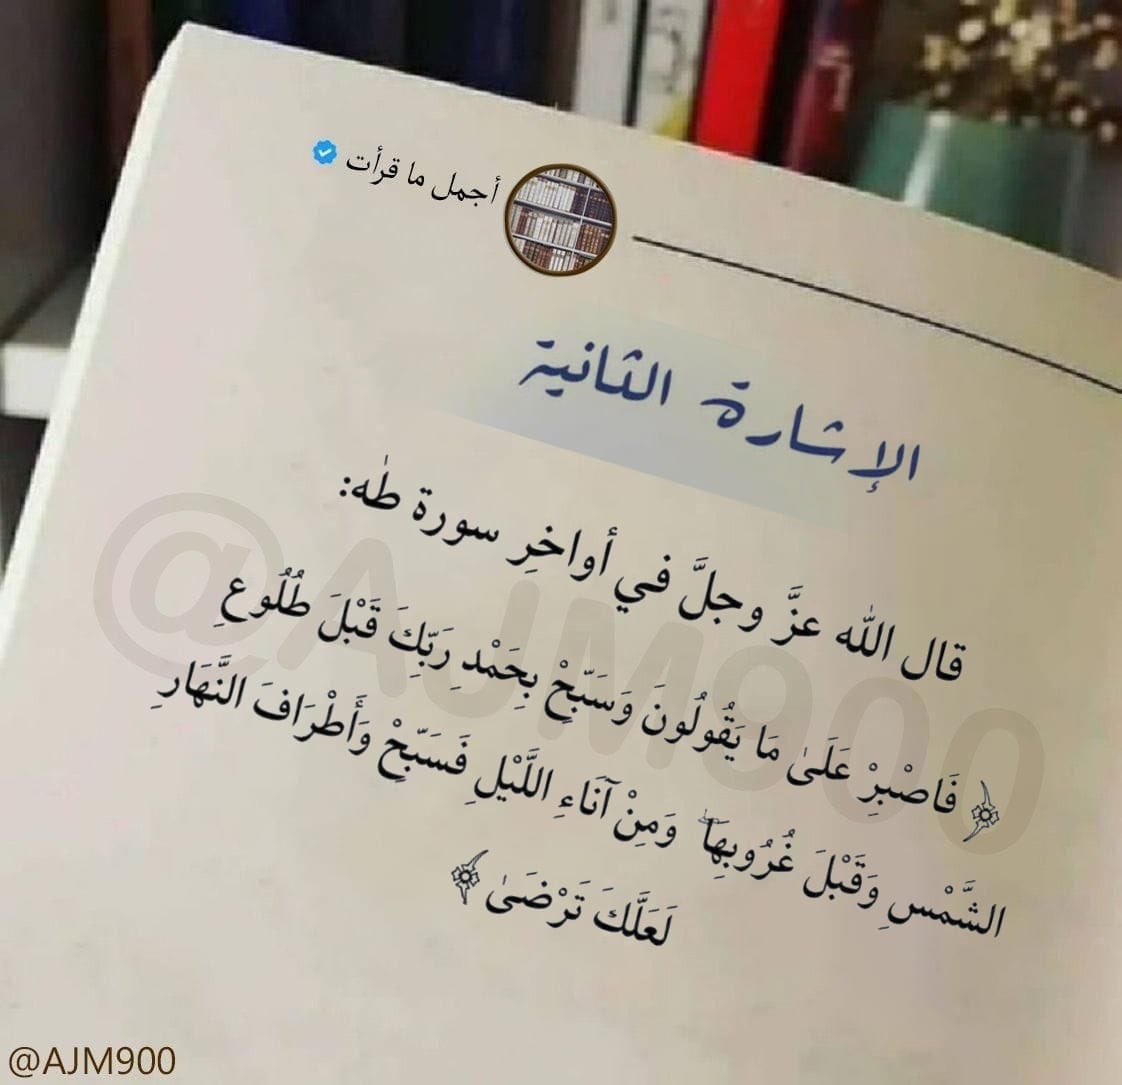 أجمل ما قرأت
الإشارة الثانية
قال الله عزَّ وجلَّ في أواخِرِ سورة طٰه:
﴿ فَاصْبِرْ عَلَىٰ مَا يَقُولُونَ وَسَبِّحْ بِحَمْدِ رَبِّكَ قَبْلَ طُلُوعِ
الشَّمْسِ وَقَبْلَ غُرُوبِهَا ۖ وَمِنْ آنَاءِ اللَّيْلِ فَسَبِّحْ وَأَطْرَافَ النَّهَارِ
لَعَلَّكَ تَرْضَىٰ ﴾
@AJM900
@AJM900